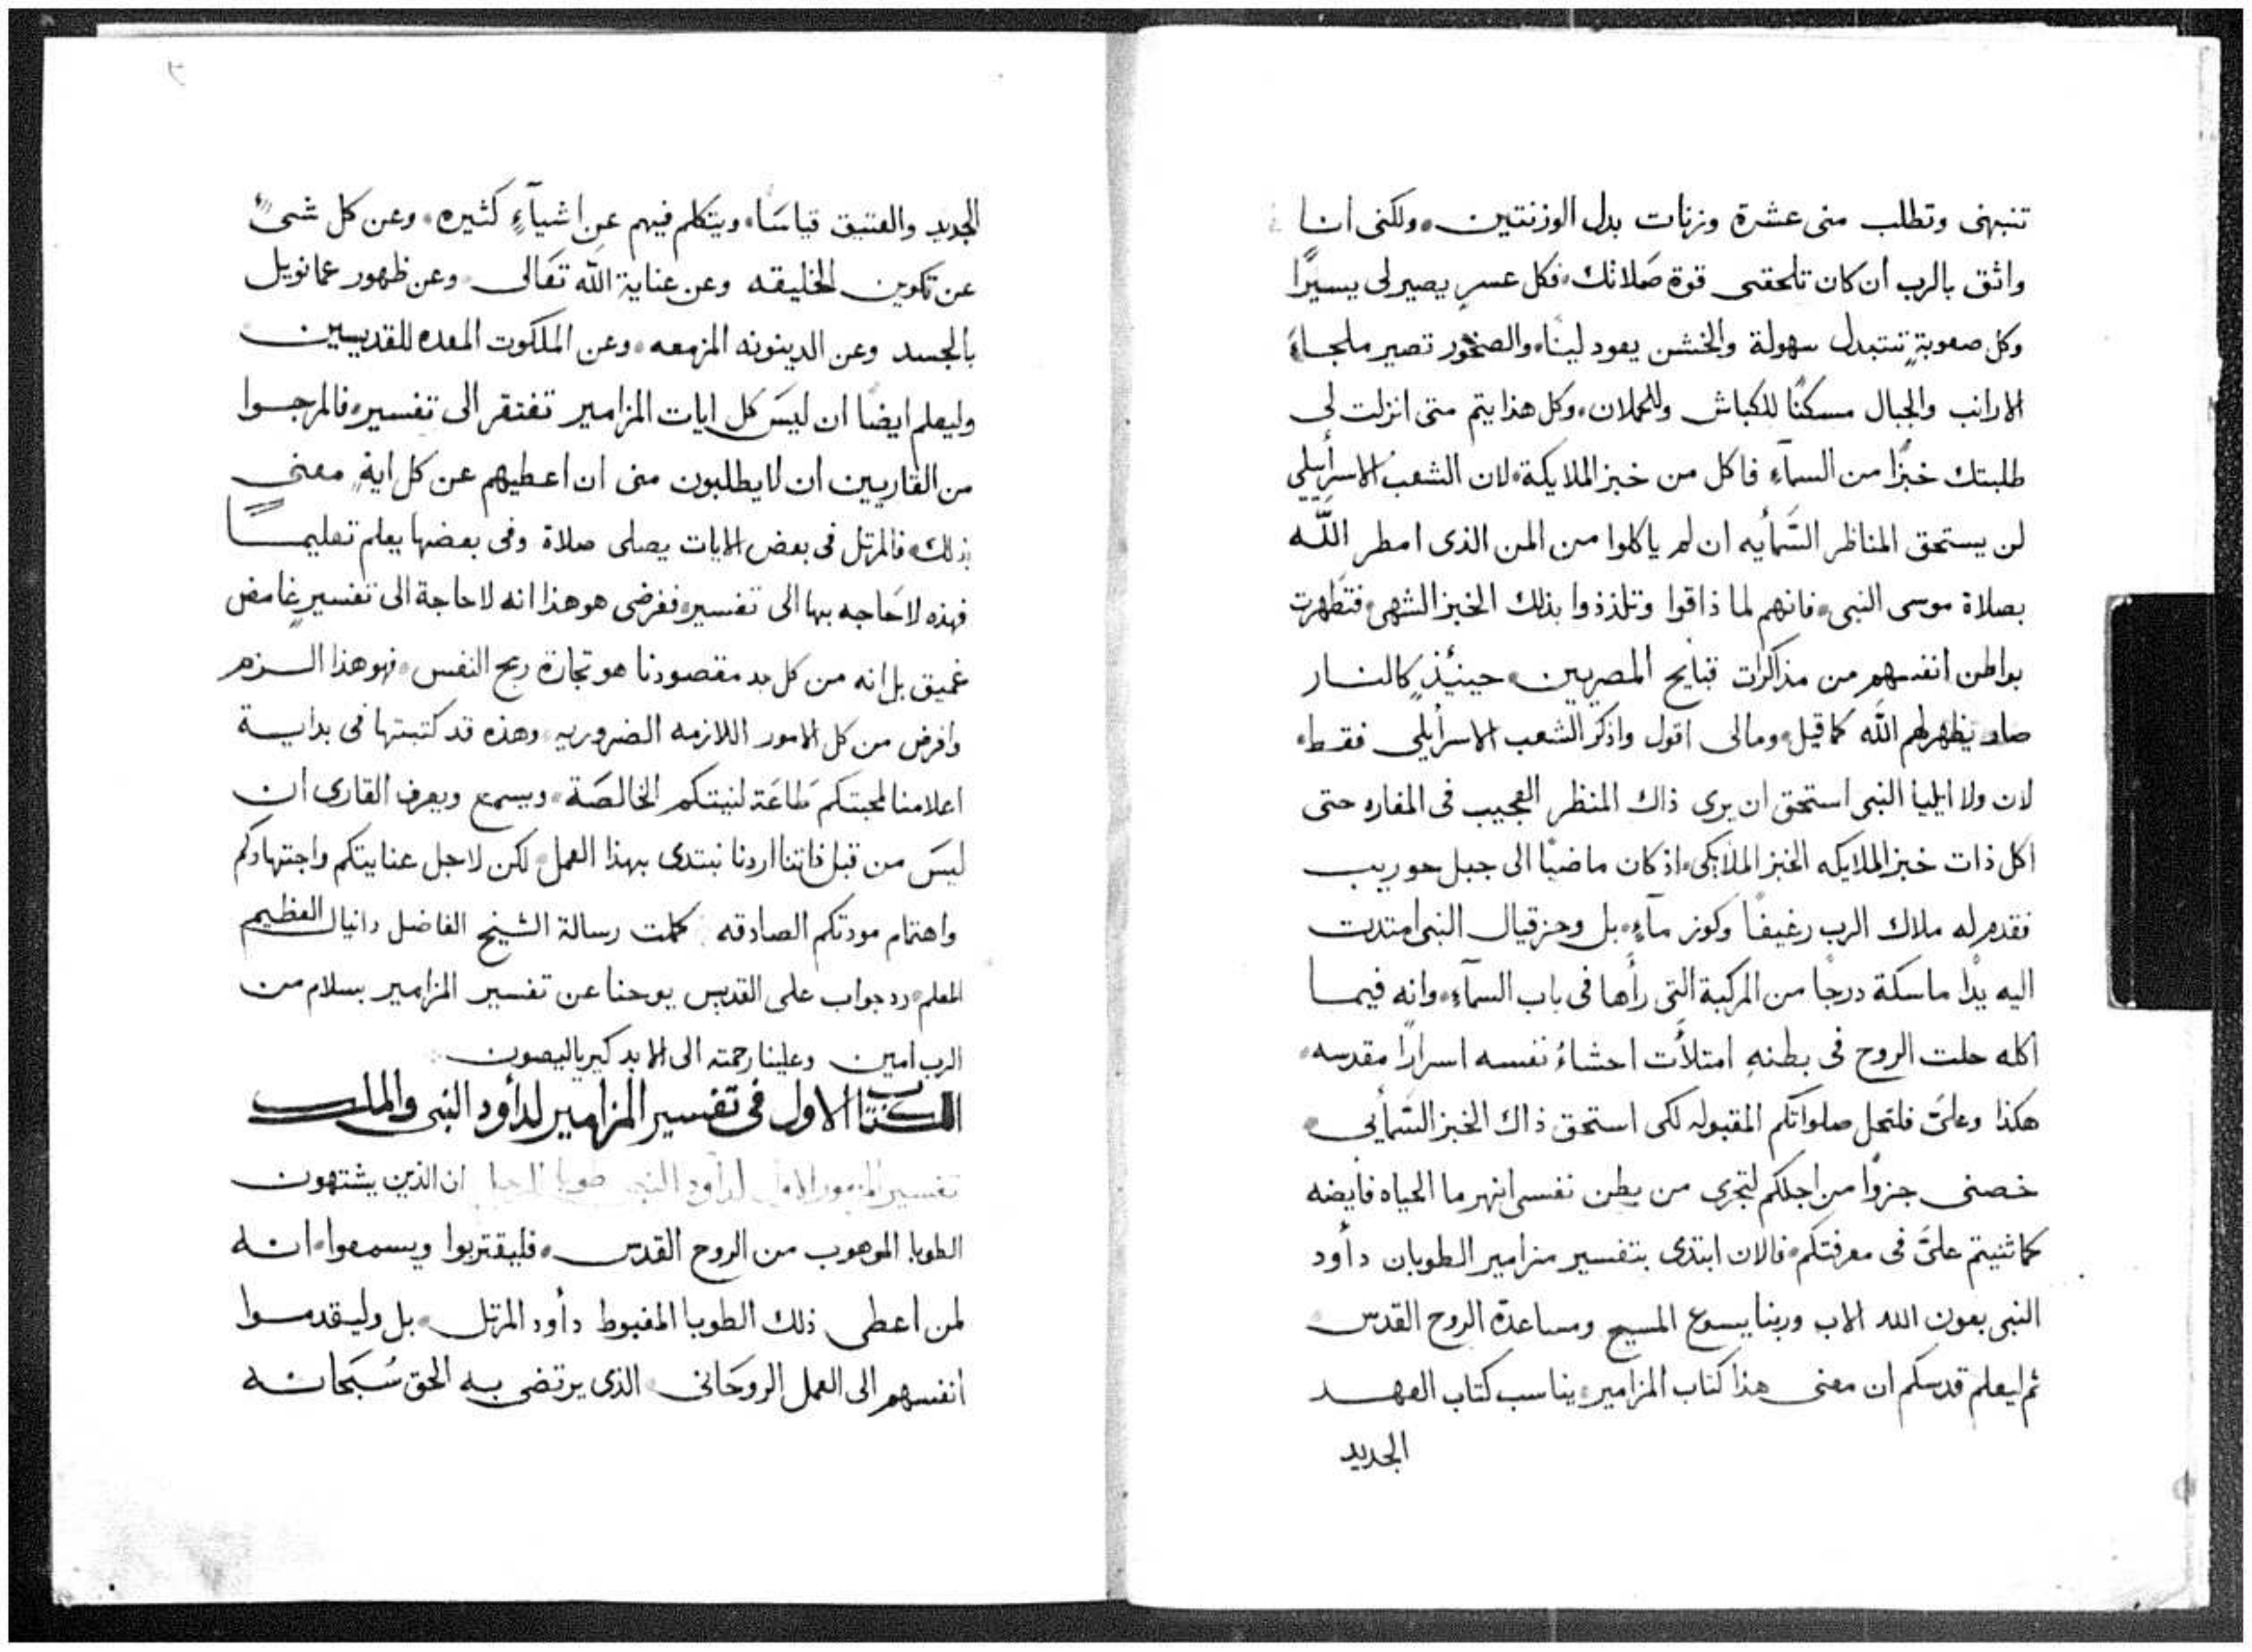 تنبهنى وتطلب منى عشرة وزنات بدل الوزنتين. ولكنى انا
واثق بالرب ان كان تلحقنى قوة صَلاتك، فكل عسرٍ يصير لى يسيرًا
وكل صعوبةٍ تتبدل سهولة والخشن يعود لينًا، والصخور تصير ملجاءً
الارانب والجبال مسكنًا للكباش وللحملان، وكل هذا يتم متى انزلت لى
طلبتك خبزًا من السمآءِ فاكل من خبز الملايكة، لان الشعب الاسرأييلى
لن يستحق المناظر السَمأيه ان لم ياكلوا من المن الذى امطر اللّه
بصلاة موسى النبى، فانهم لما ذاقوا وتلذذوا بذلك الخبز الشهى، فتَطهرت
بواطن انفسهم من مذاكرات قبايح المصريين، حينئذٍ كالنار
صار يظهر لهم اللّه كما قيل، ومالى اقول واذكر الشعب الاسرأيلى فقط،
لان ولا ايليا النبى استحق ان يرى ذاك المنظر العجيب فى المغاره حتى
اكل ذات خبز الملايكه الخبز الملايكى، اذ كان ماضيًا الى جبل حوريب
فقدم له ملاك الرب رغيفًا وكوز مآءٍ، بل وحزقيال النبى امتدت
اليه يدًا ماسكة درجًا من المركبة التى رأها فى باب السمآءِ، وانه فيما
اكله حلت الروح فى بطنهِ امتلأت احشاءُ نفسه اسرارًا مقدسه،
هكذا وعلىَّ فلتحل صلواتكم المقبوله لكى استحق ذاك الخبز السَمأيى،
خصنى جزوًا من اجلكم لتجرى من بطن نفسى انهر ما الحياه فايضه
كما ثنيتم علىَّ فى معرفتكم، فالان ابتدى بتفسير مزامير الطوبان دأود
النبى بعون الله الاب وربنا يسوع المسيح ومساعدة الروح القدس،
ثم ليعلم قدسكم ان معنى هذا كتاب المزامير، يناسب كتاب العهد
الجديد
٣
الجديد والعتيق قياسًا، ويتكلم فيهم عن اشيآءٍ كثيره، وعن كل شىءٍ
عن تكوين الخليقه وعن عناية اللّه تعَالى وعن ظهور عمانويل
بالجسد وعن الدينونه المزمعه، وعن الملكوت المعده للقديسين
وليعلم ايضًا ان ليسَ كل ايات المزامير تفتقر الى تفسير، فالمرجوا
من القاريين ان لا يطلبون منى ان اعطيهم عن كل ايةٍ معنى
بذلك، فالمرتل فى بعض الايات يصلى صلاة وفى بعضها يعلم تعليمًا
فهذه لا حَاجه بها الى تفسير، فغرضى هو هذا انه لا حاجة الى تفسيرٍ غامض
عميق بل انه من كل بد مقصودنا هو تجارة ربح النفس، فهو هذا الزم
وافرض من كل الامور اللازمه الضروريه، وهذه قد كتبتها فى بداية
اعلامنا لمحبتكم طَاعَة لنيتكم الخالصَة، ويسمع ويعرف القارى ان
ليسَ من قبل ذاتنا اردنا نبتدى بهذا العمل، لكن لاجل عنايتكم واجتهادكم
واهتمام مودتكم الصادقه كملت رسالة الشيخ الفاضل دانيال العظيم
المعلم، رد جواب على القديس يوحنا عن تفسير المزامير بسلام من
الرب امين وعلينا رحمته الى الابد كيرياليصون
الكتاب الاول فى تفسير المزامير لدأود النبى والملك
تفسير المزمور الاول لدأود النبى طوبا للرجل ان الذين يشتهون
الطوبا الموهوب من الروح القدس، فليقتربوا ويسمعوا، انه
لمن اعطى ذلك الطوبا المغبوط دأود المرتل، بل وليقدموا
انفسهم الى العمل الروحَانى الذى يرتضى به الحق سُبَحانه